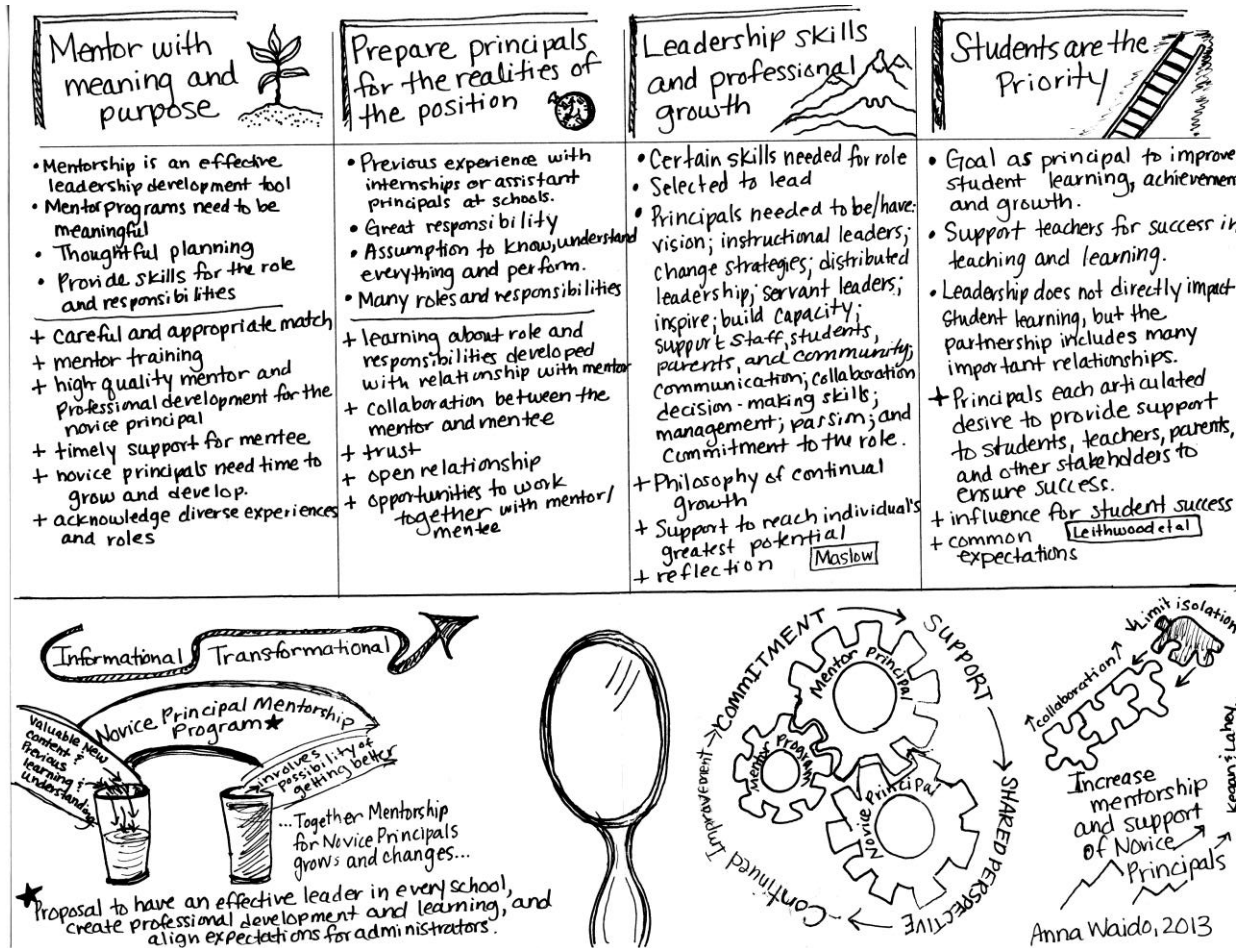 Mentor with
meaning and
purpose
• Mentorship is an effective
leadership development tool
• Mentor programs need to be
meaningful
• Thoughtful planning
• Provide skills for the role
and responsibilities
+ careful and appropriate match
+ mentor training
+ high quality mentor and
professional development for the
novice principal
+ timely support for mentee
+ novice principals need time to
grow and develop.
+ acknowledge diverse experiences
and roles
Prepare principals
for the realities of
the position
• Previous experience with
internships or assistant
principals at schools.
• Great responsibility
• Assumption to know, understand
everything and perform.
• Many roles and responsibilities
+ learning about role and
responsibilities developed
with relationship with mentor
+ collaboration between the
mentor and mentee
+ trust
+ open relationship
+ opportunities to work
together with mentor/
mentee
Leadership skills
and professional
growth
• Certain skills needed for role
• Selected to lead
• Principals needed to be/have:
vision; instructional leaders;
change strategies; distributed
leadership; servant leaders;
inspire; build capacity;
support staff, students,
parents, and community;
communication; collaboration
decision-making skills;
management; passion; and
commitment to the role.
+ Philosophy of continual
growth
+ Support to reach individual's
greatest potential
+ reflection
Maslow
Students are the
Priority
• Goal as principal to improve
student learning, achievement
and growth.
• Support teachers for success in
teaching and learning.
• Leadership does not directly impact
student learning, but the
partnership includes many
important relationships.
+ Principals each articulated
desire to provide support
to students, teachers, parents,
and other stakeholders to
ensure success.
+ influence for student success
+ common
expectations
Leithwood et al
Informational Transformational
Novice Principal Mentorship
Program★
Valuable New
content &
Previous
learning &
understanding
involves
possibility of
getting better
...Together Mentorship
for Novice Principals
grows and changes...
★Proposal to have an effective leader in every school,
create professional development and learning, and
align expectations for administrators.
COMMITMENT
SUPPORT
SHARED PERSPECTIVE
Continued Improvement
Mentor Principal
Mentor Program
Novice Principal
↓Limit isolation
↑collaboration↑
Increase
mentorship
and support
of Novice
Principals
Kegan & Lahey
Anna Waido, 2013